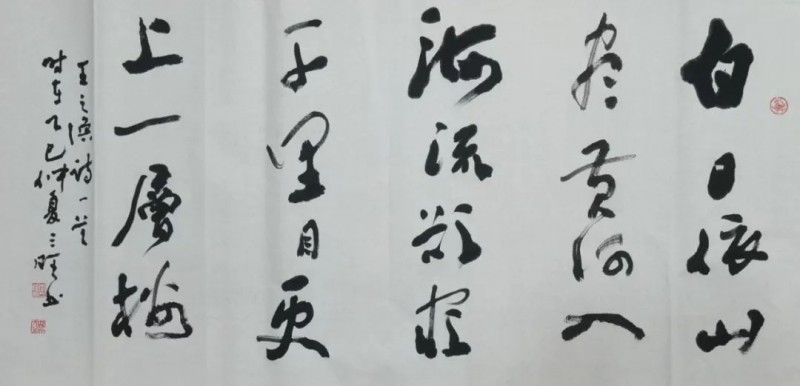 白日依山
尽黄河入
海流欲穷
千里目更
上一层楼
王之涣诗一首
时在乙巳仲夏三
书